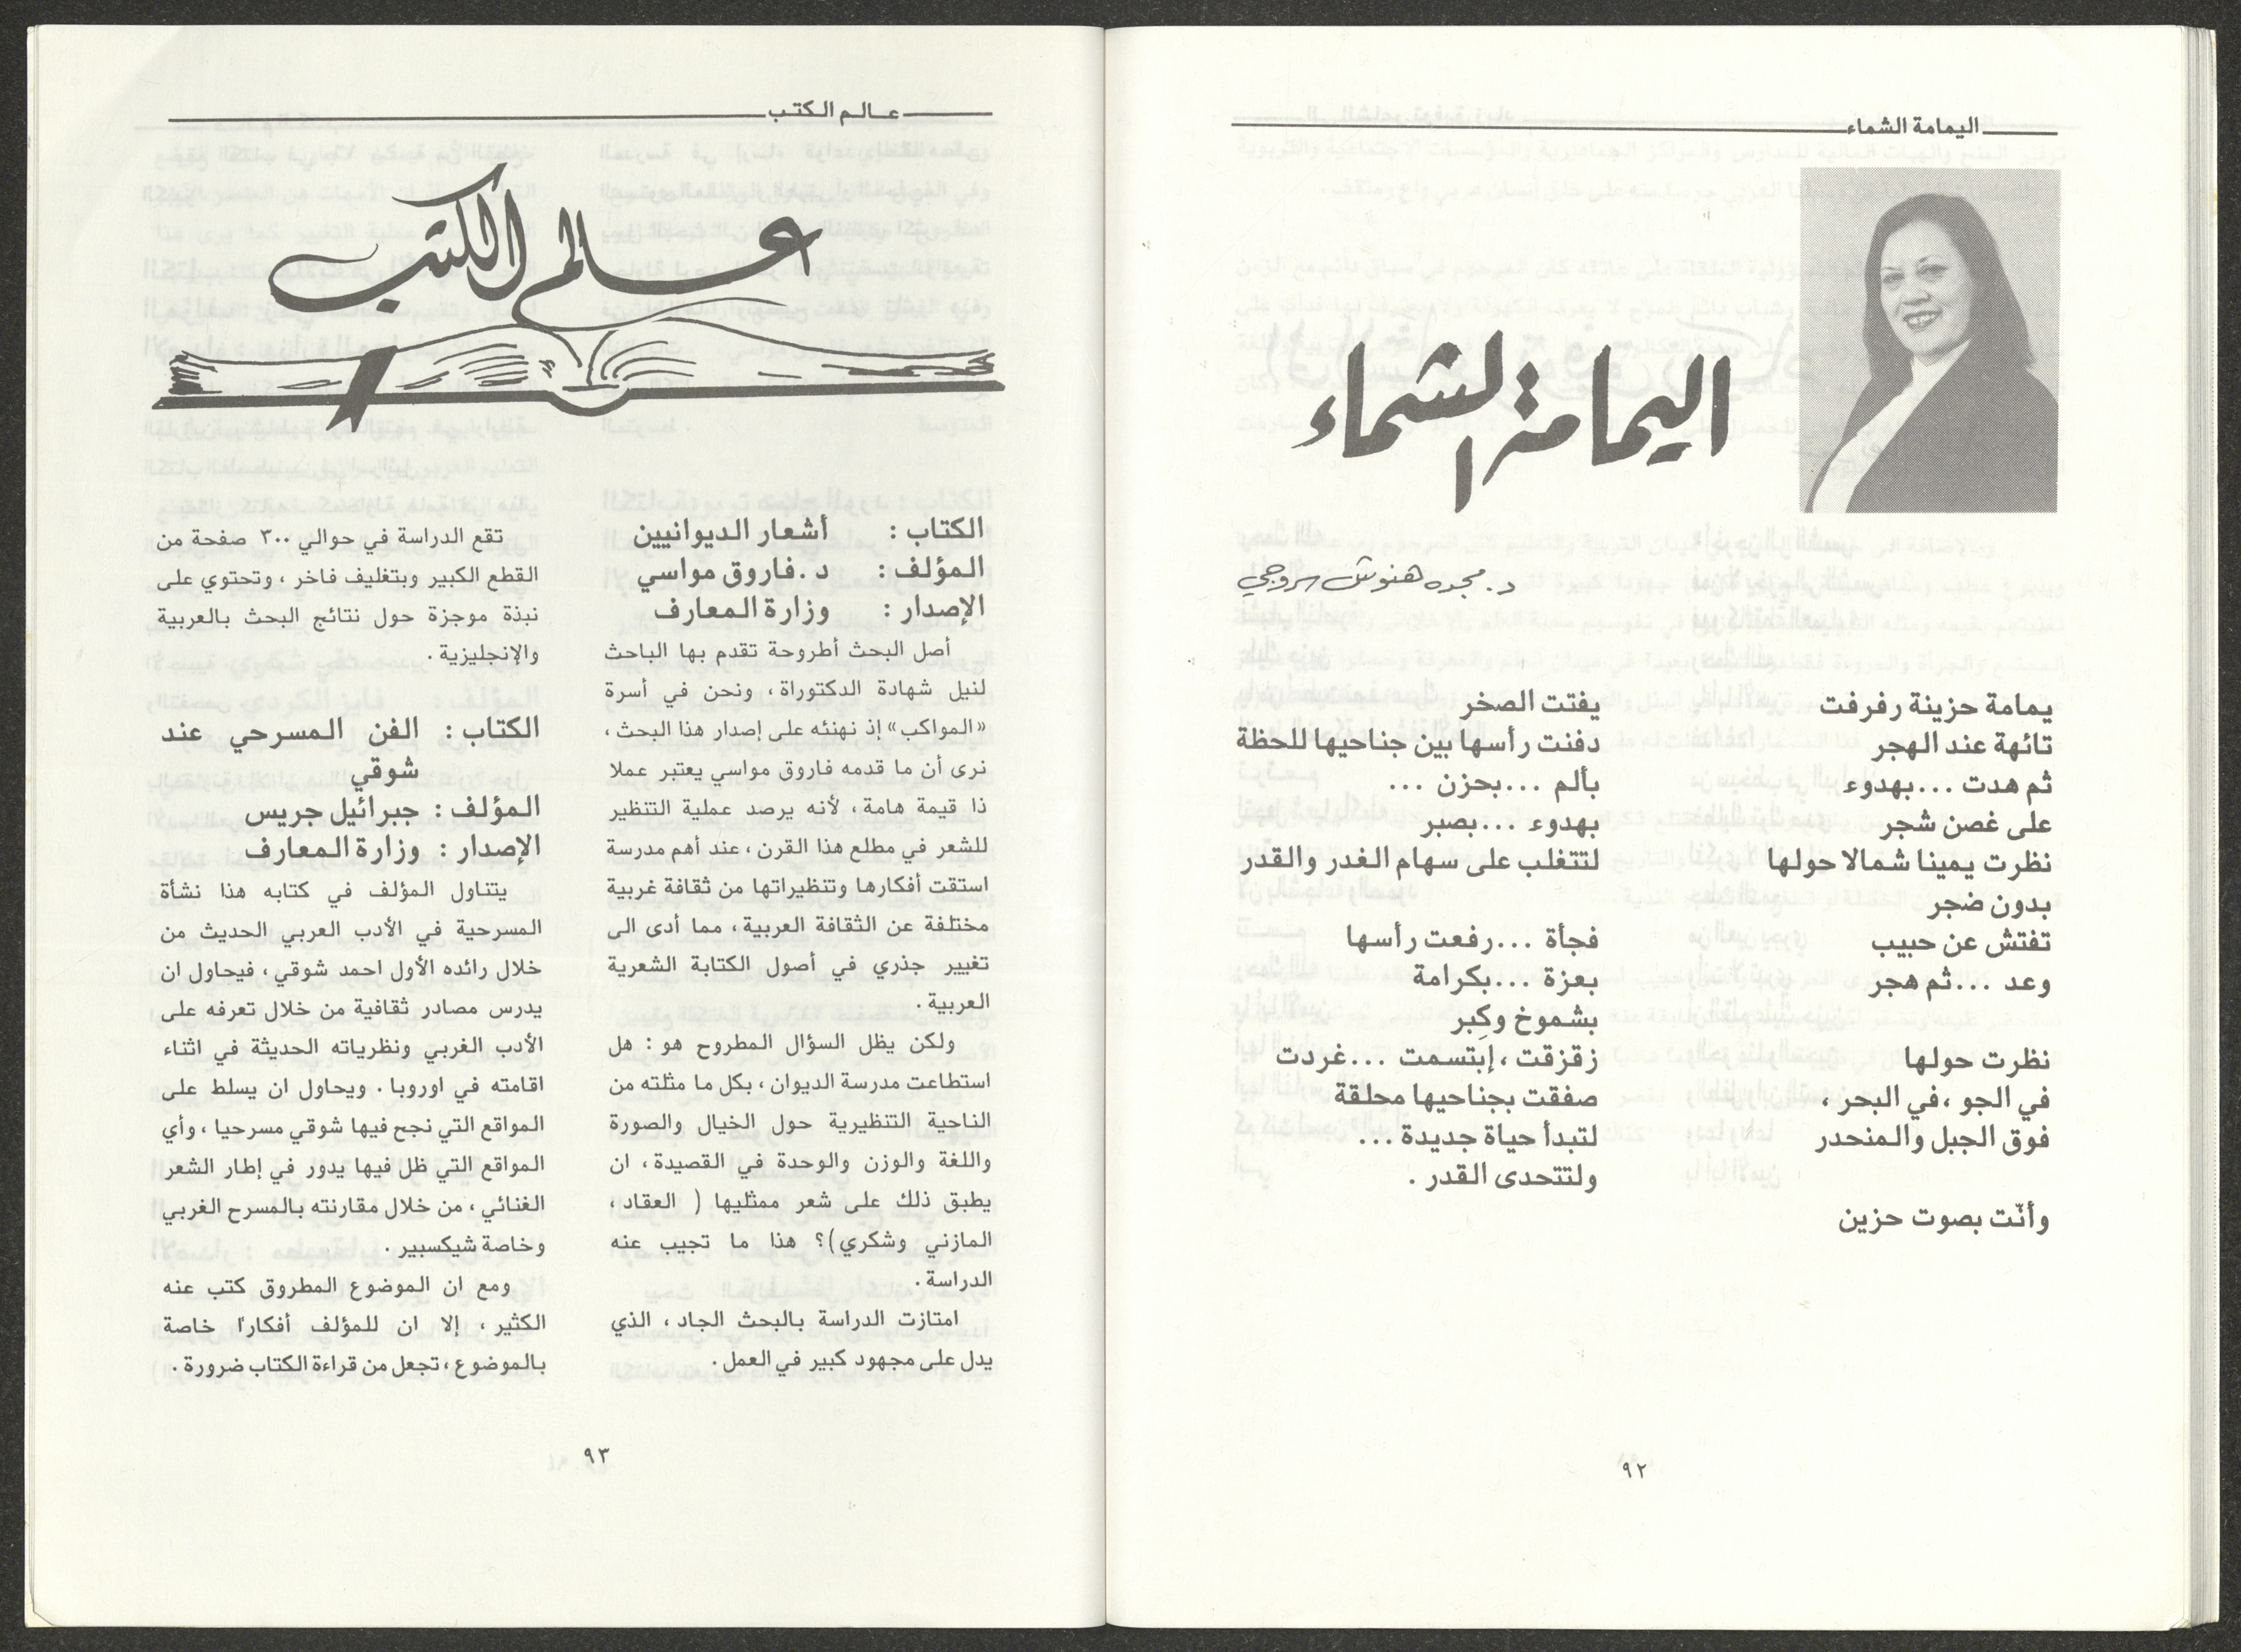 اليمامة الشماء
اليمامة الشماء
د. مجده هنوش سروجي
يمامة حزينة رفرفت
تائهة عند الهجر
ثم هدت ...بهدوء
على غصن شجر
نظرت يمينا شمالا حولها
بدون ضجر
تفتش عن حبيب
وعد ...ثم هجر
نظرت حولها
في الجو ،في البحر ،
فوق الجبل والمنحدر
وأنّت بصوت حزين
يفتت الصخر
دفنت رأسها بين جناحيها للحظة
بألم ...بحزن ...
بهدوء ...بصبر
لتتغلب على سهام الغدر والقدر
فجأة ...رفعت رأسها
بعزة ...بكرامة
بشموخ وكِبر
زقزقت ،إبتسمت ...غردت
صفقت بجناحيها محلقة
لتبدأ حياة جديدة ...
ولتتحدى القدر .
٩٢
عالم الكتب
عالم الكتب
الكتاب : أشعار الديوانيين
المؤلف : د.فاروق مواسي
الإصدار : وزارة المعارف
أصل البحث أطروحة تقدم بها الباحث
لنيل شهادة الدكتوراة، ونحن في أسرة
«المواكب» إذ نهنئه على إصدار هذا البحث ،
نرى أن ما قدمه فاروق مواسي يعتبر عملا
ذا قيمة هامة، لأنه يرصد عملية التنظير
للشعر في مطلع هذا القرن ، عند أهم مدرسة
استقت أفكارها وتنظيراتها من ثقافة غربية
مختلفة عن الثقافة العربية، مما أدى الى
تغيير جذري في أصول الكتابة الشعرية
العربية .
ولكن يظل السؤال المطروح هو : هل
استطاعت مدرسة الديوان ، بكل ما مثلته من
الناحية التنظيرية حول الخيال والصورة
واللغة والوزن والوحدة في القصيدة، ان
يطبق ذلك على شعر ممثليها ( العقاد،
المازني وشكري)؟ هذا ما تجيب عنه
الدراسة .
امتازت الدراسة بالبحث الجاد، الذي
يدل على مجهود كبير في العمل .
تقع الدراسة في حوالي ٣٠٠ صفحة من
القطع الكبير وبتغليف فاخر ، وتحتوي على
نبذة موجزة حول نتائج البحث بالعربية
والإنجليزية .
الكتاب : الفن المسرحي عند
شوقي
المؤلف : جبرائيل جريس
الإصدار : وزارة المعارف
يتناول المؤلف في كتابه هذا نشأة
المسرحية في الأدب العربي الحديث من
خلال رائده الأول احمد شوقي ، فيحاول ان
يدرس مصادر ثقافية من خلال تعرفه على
الأدب الغربي ونظرياته الحديثة في اثناء
اقامته في اوروبا . ويحاول ان يسلط على
المواقع التي نجح فيها شوقي مسرحيا ، وأي
المواقع التي ظل فيها يدور في إطار الشعر
الغنائي ، من خلال مقارنته بالمسرح الغربي
وخاصة شيكسبير .
ومع ان الموضوع المطروق كتب عنه
الكثير، إلا ان للمؤلف أفكارًا خاصة
بالموضوع ، تجعل من قراءة الكتاب ضرورة .
٩٣